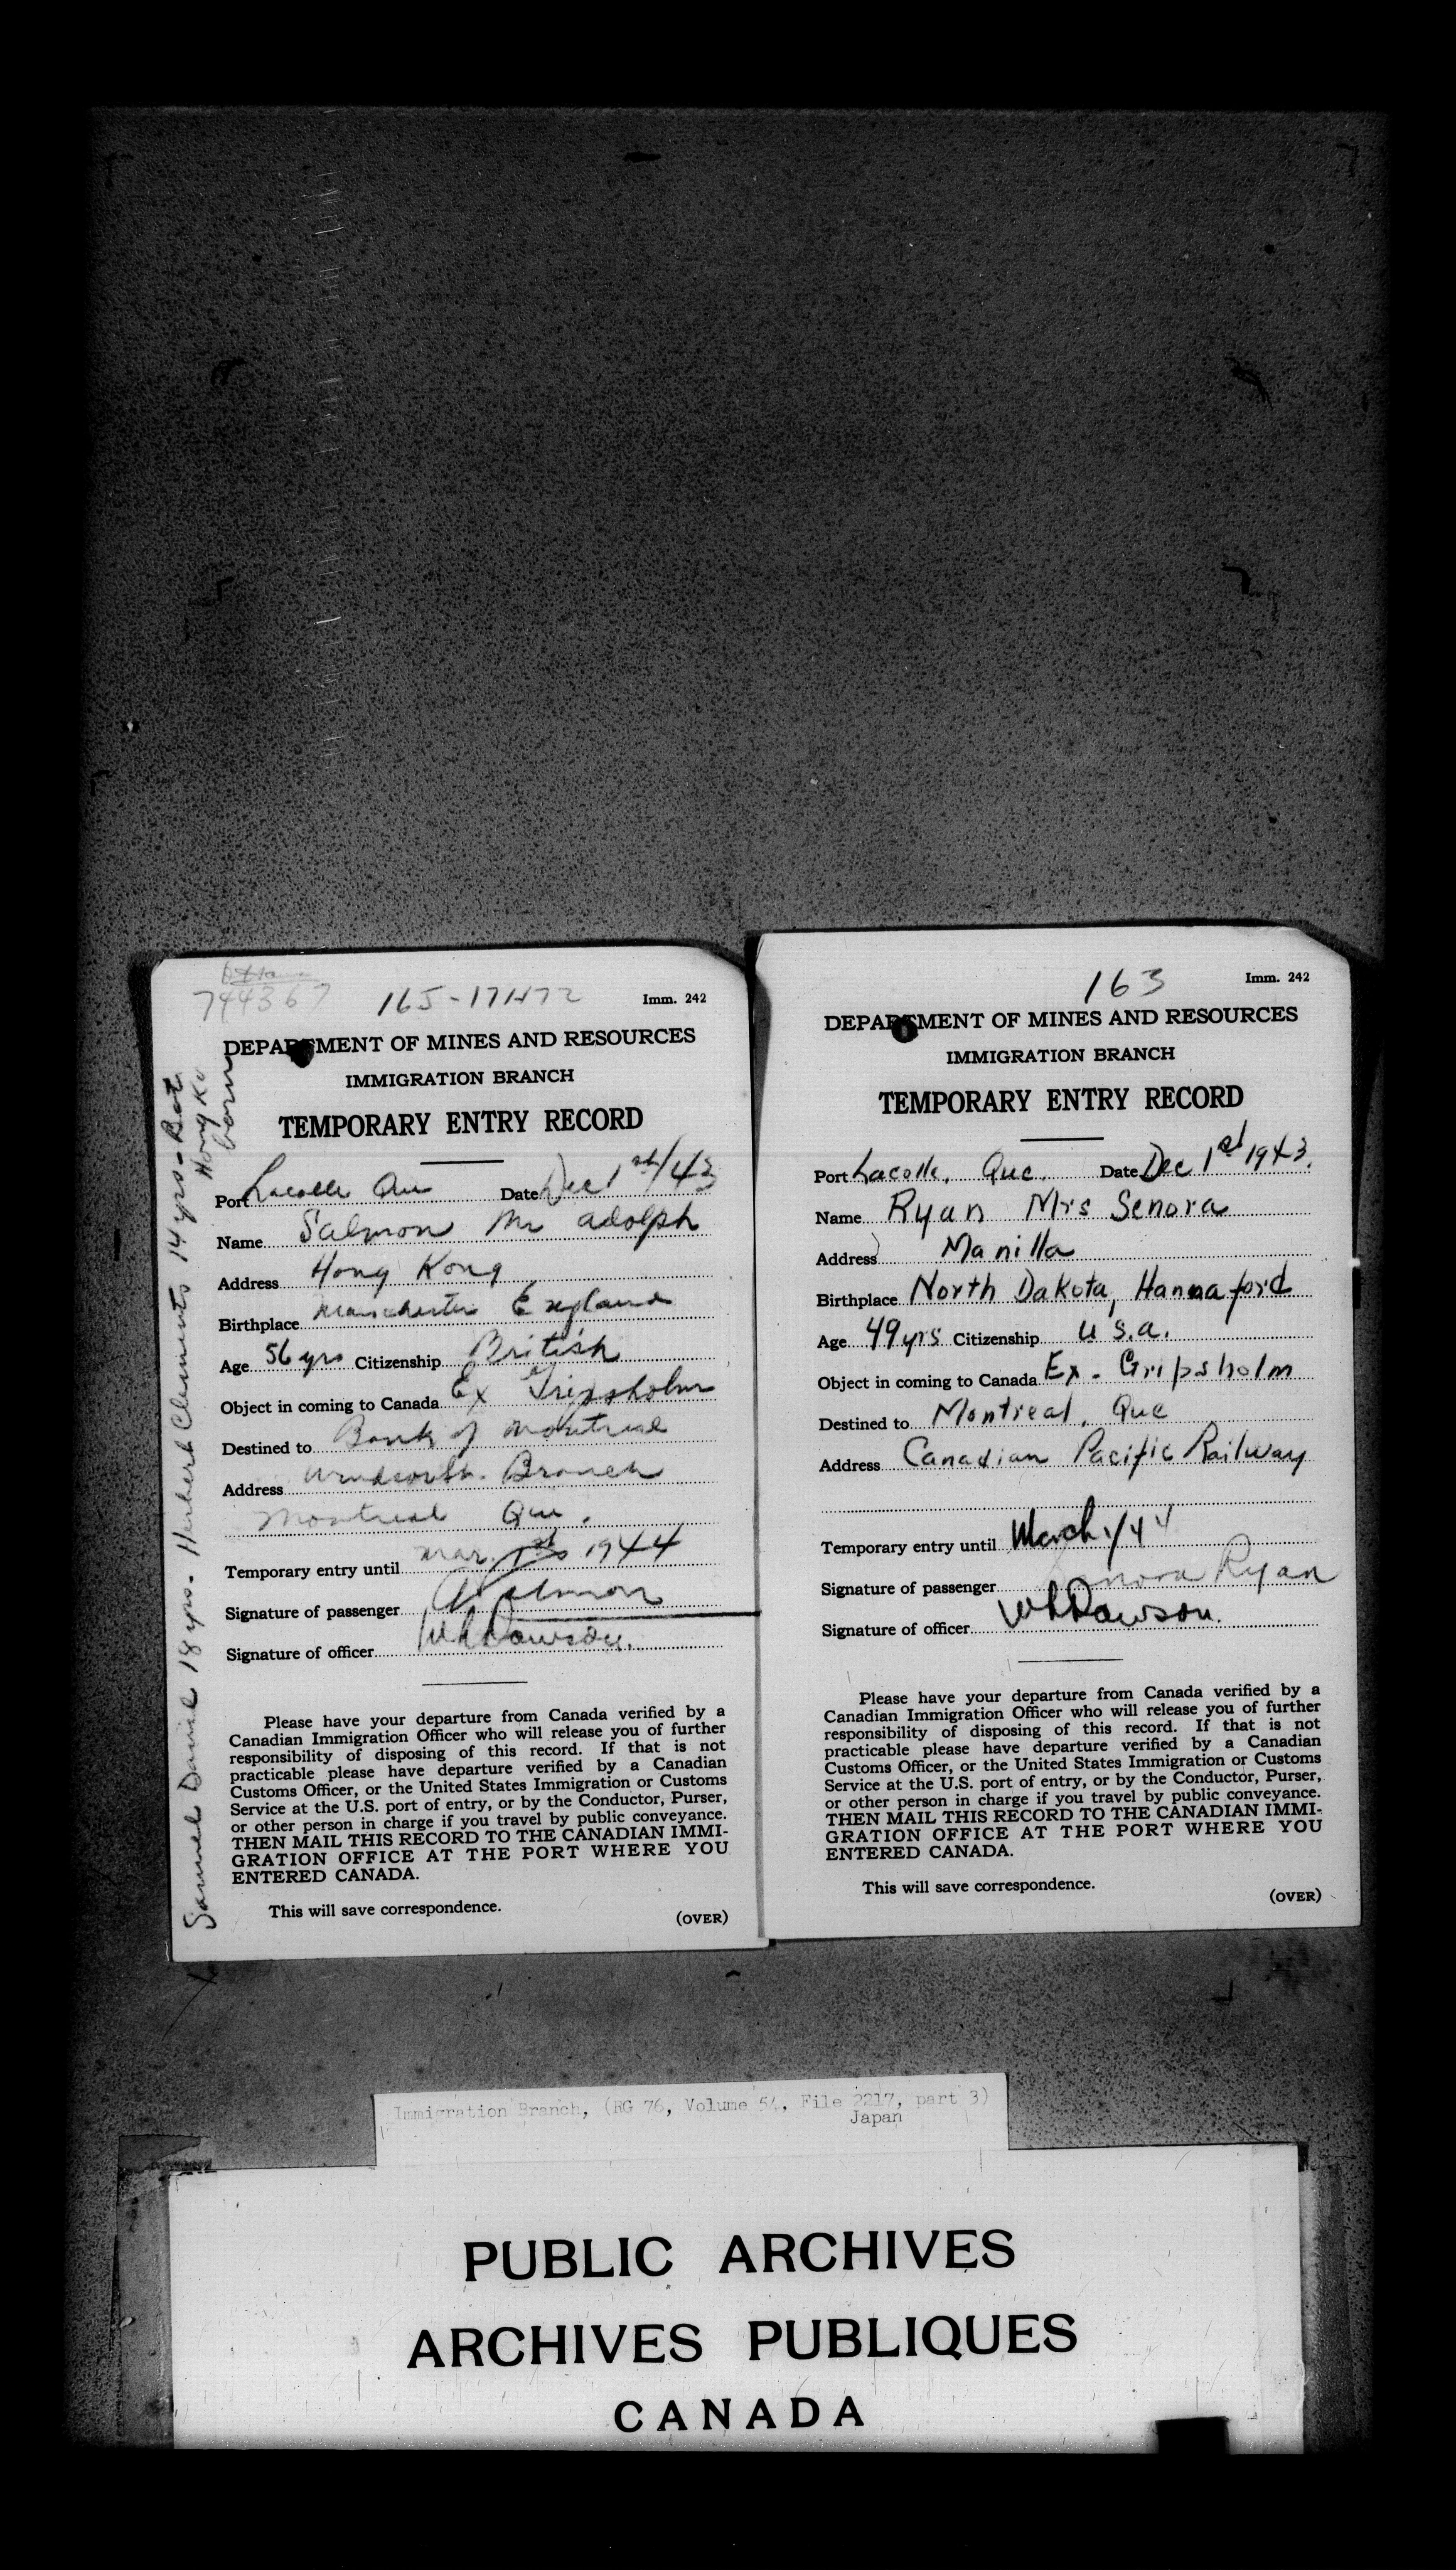 Ottawa
744367 165-171+72 Imm. 242
DEPARTMENT OF MINES AND RESOURCES
IMMIGRATION BRANCH
TEMPORARY ENTRY RECORD
Port Lacolle Que Date Dec 1st/43
Name Salmon Mr adolph
Address Hong Kong
Birthplace Manchester England
Age 56 yrs Citizenship British
Object in coming to Canada Ex Gripsholm
Destined to Bank of Montreal
Address Branch
Montreal Que.
Temporary entry until Mar. 1st 1944
Signature of passenger A Salmon
Signature of officer WLDawson.
Please have your departure from Canada verified by a
Canadian Immigration Officer who will release you of further
responsibility of disposing of this record. If that is not
practicable please have departure verified by a Canadian
Customs Officer, or the United States Immigration or Customs
Service at the U.S. port of entry, or by the Conductor, Purser,
or other person in charge if you travel by public conveyance.
THEN MAIL THIS RECORD TO THE CANADIAN IMMI-
GRATION OFFICE AT THE PORT WHERE YOU
ENTERED CANADA.
This will save correspondence.
(OVER)
Samuel David 18 yrs. Herbert Clements 14 yrs - Both
Hong Ko
born
163 Imm. 242
DEPARTMENT OF MINES AND RESOURCES
IMMIGRATION BRANCH
TEMPORARY ENTRY RECORD
Port Lacolle, Que. Date Dec 1st 1943.
Name Ryan Mrs Senora
Address Manilla
Birthplace North Dakota, Hannaford
Age 49 yrs Citizenship U S.a.
Object in coming to Canada Ex - Gripsholm
Destined to Montreal, Que
Address Canadian Pacific Railway
Temporary entry until March 1/44
Signature of passenger Senora Ryan
Signature of officer WLDawson.
Please have your departure from Canada verified by a
Canadian Immigration Officer who will release you of further
responsibility of disposing of this record. If that is not
practicable please have departure verified by a Canadian
Customs Officer, or the United States Immigration or Customs
Service at the U.S. port of entry, or by the Conductor, Purser,
or other person in charge if you travel by public conveyance.
THEN MAIL THIS RECORD TO THE CANADIAN IMMI-
GRATION OFFICE AT THE PORT WHERE YOU
ENTERED CANADA.
This will save correspondence.
(OVER)
Immigration Branch, (RG 76, Volume 54, File 2217, part 3)
Japan
PUBLIC ARCHIVES
ARCHIVES PUBLIQUES
CANADA